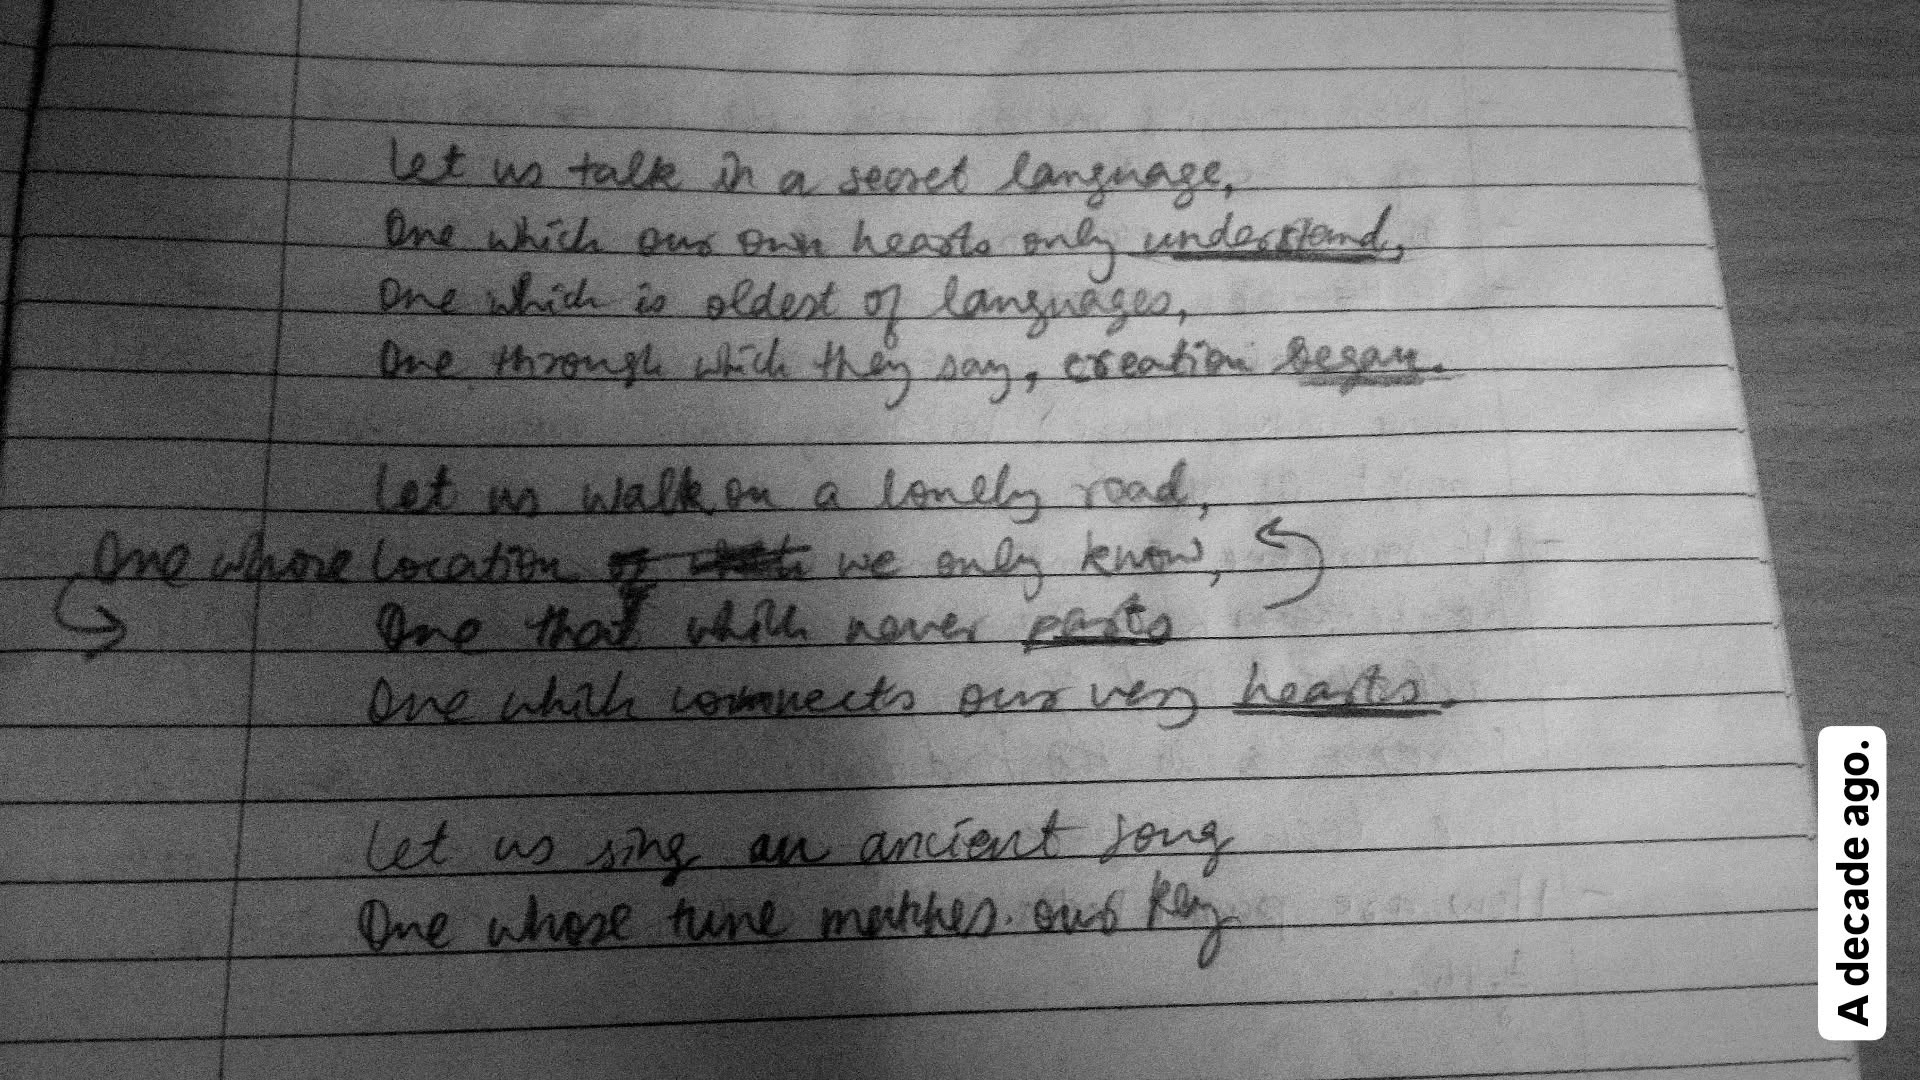 Let us talk in a secret language,
One which our own hearts only understand,
One which is oldest of languages,
One through which they say, creation began.
Let us walk on a lonely road,
One whose location we only know,
One that which never parts
One which connects our very hearts.
Let us sing an ancient song
One whose tune matches our key
A decade ago.